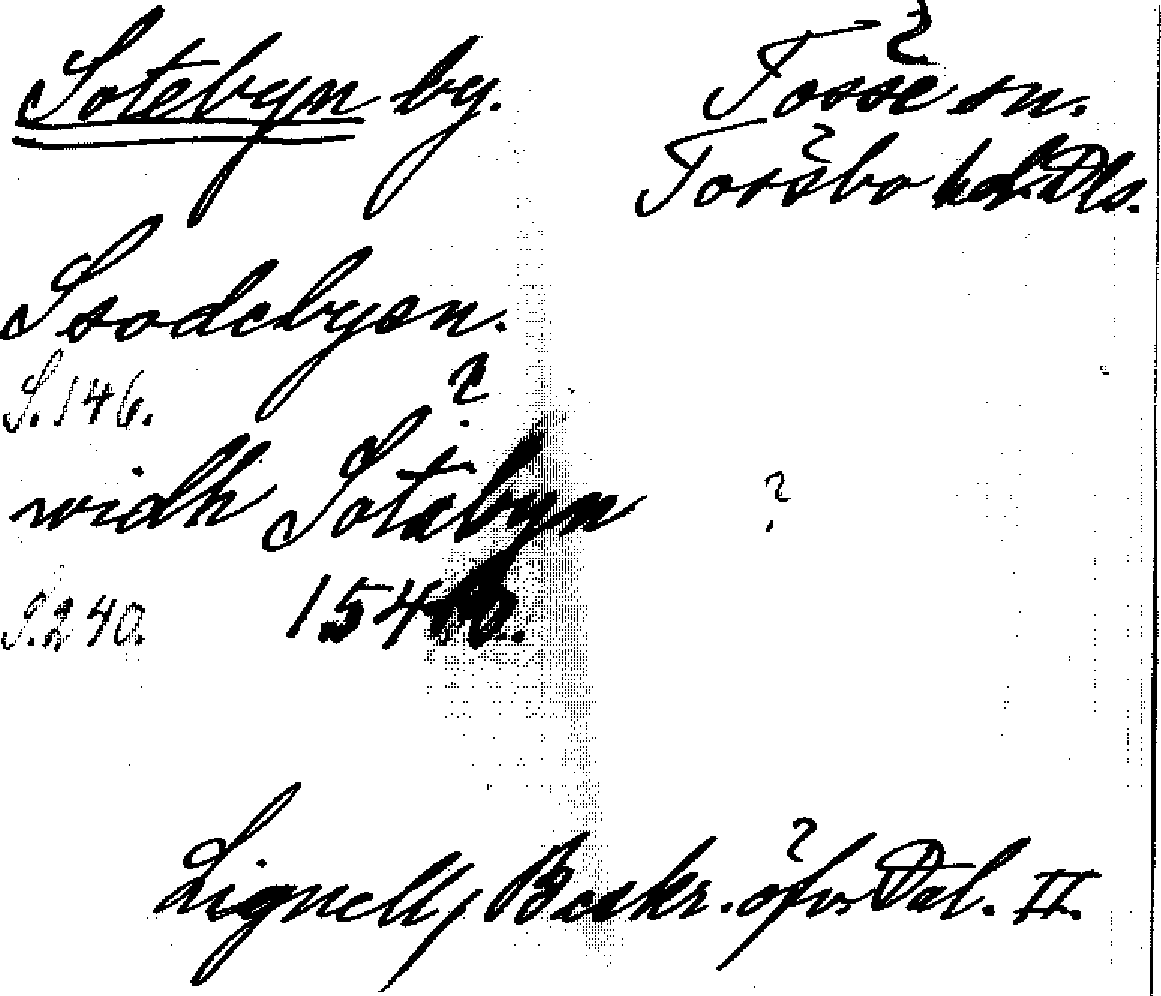 Sotebyn by.
Tösse sn.
Tössbo hd. Dls.
Ssodebyen.
S. 146.
?
widh Sotabyn
?
S. 240.
Lignell, Beskr. öfv. Dal. II.